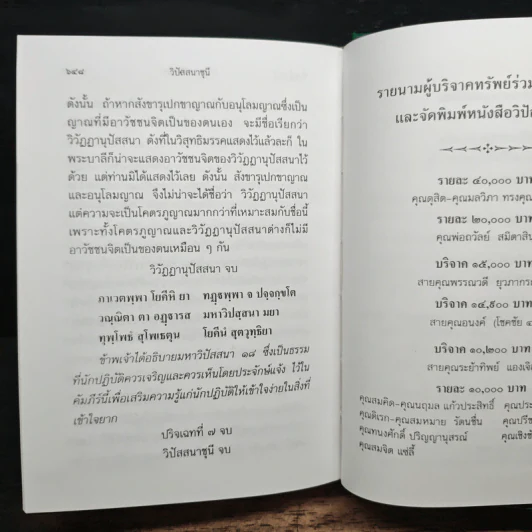 ๖๔๘ วิปัสสนาชุนี
ดังนั้น ถ้าหากสังขารุเปกขาญาณกับอนุโลมญาณซึ่งเป็น
ญาณที่มีอาวัชชนจิตเป็นของตนเอง จะมีชื่อเรียกว่า
วิวัฏฏานุปัสสนา ดังที่ในวิสุทธิมรรคแสดงไว้แล้วละก็ ใน
พระบาลีก็น่าจะแสดงอาวัชชนจิตของวิวัฏฏานุปัสสนาไว้
ด้วย แต่ท่านมิได้แสดงไว้เลย ดังนั้น สังขารุเปกขาญาณ
และอนุโลมญาณ จึงไม่น่าจะได้ชื่อว่า วิวัฏฏานุปัสสนา
แต่ความจะเป็นโคตรภูญาณมากกว่าที่เหมาะสมกับชื่อนี้
เพราะทั้งโคตรภูญาณและวิวัฏฏานุปัสสนาต่างก็ไม่มี
อาวัชชนจิตเป็นของตนเหมือน ๆ กัน
วิวัฏฏานุปัสสนา จบ
ภาเวตพฺพา โยคีหิ ยา ทฏฺฐพฺพา จ ปจฺจกฺขโต
วณฺณิตา ตา อฏฺฐารส มหาวิปสฺสนา มยา
ทุพฺโพธํ สุโพเธตุน โยคีนํ สุตวุทฺธิยา
ข้าพเจ้าได้อธิบายมหาวิปัสสนา ๑๘ ซึ่งเป็นธรรม
ที่นักปฏิบัติควรเจริญและควรเห็นโดยประจักษ์แจ้ง ไว้ใน
คัมภีร์นี้เพื่อเสริมความรู้แก่นักปฏิบัติให้เข้าใจง่ายในสิ่งที่
เข้าใจยาก
ปริจเฉทที่ ๗ จบ
วิปัสสนาชุนี จบ
รายนามผู้บริจาคทรัพย์ร่วม
และจัดพิมพ์หนังสือวิปัส
รายละ ๔๐,๐๐๐ บาท
คุณดุสิต-คุณมลวิภา ทรงคุณ
รายละ ๒๐,๐๐๐ บาท
คุณพ่อถวัลย์ สมิตาสิน
บริจาค ๑๕,๐๐๐ บาท
สายคุณพรรณวดี ยุวภากร
บริจาค ๑๔,๙๐๐ บาท
สายคุณอนงค์ (โชคชัย ๔
บริจาค ๑๐,๒๐๐ บาท
สายคุณระยำทิพย์ แองเจิ
รายละ ๑๐,๐๐๐ บาท
คุณสมคิด-คุณนฤมล แก้วประสิทธิ์ คุณประ
คุณดิเรก-คุณสมหมาย รัตนชื่น คุณปรีช
คุณทนงศักดิ์ ปริญญานุสรณ์ คุณเชิงชั
คุณสมจิต แซ่ลี้